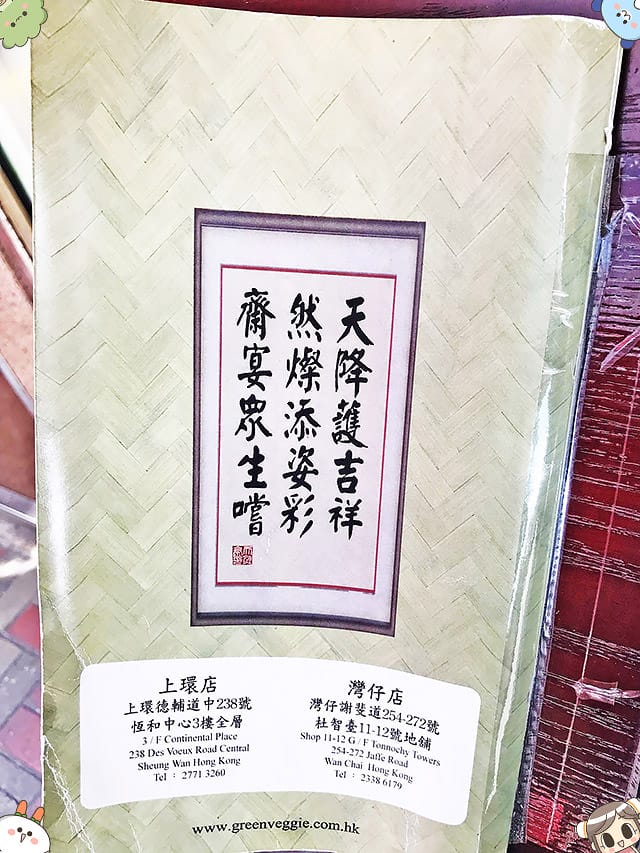 天降護吉祥
然燦添姿彩
齋宴眾生嚐
上環店
上環德輔道中238號
恆和中心3樓全層
3 / F Continental Place
238 Des Voeux Road Central
Sheung Wan Hong Kong
Tel : 2771 3260
灣仔店
灣仔謝斐道254-272號
杜智臺11-12號地舖
Shop 11-12 G / F Tonnochy Towers
254-272 Jaffe Road
Wan Chai Hong Kong
Tel : 2338 6179
www.greenveggie.com.hk